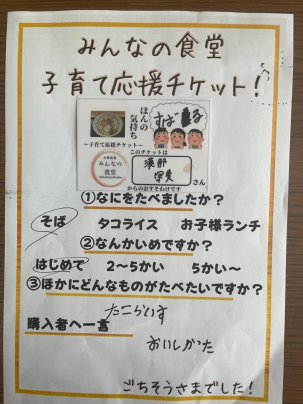 みんなの食堂
子育て応援チケット!
ほんの
気持ち
~子育て応援チケット~
このチケットは
みんなの
食堂
さん
からのおすそわけです
①なにをたべましたか?
そば タコライス お子様ランチ
②なんかいめですか?
はじめて 2~5かい 5かい~
③ほかにどんなものがたべたいですか?
たこらいす
購入者へ一言
おいしかた
ごちそうさまでした!